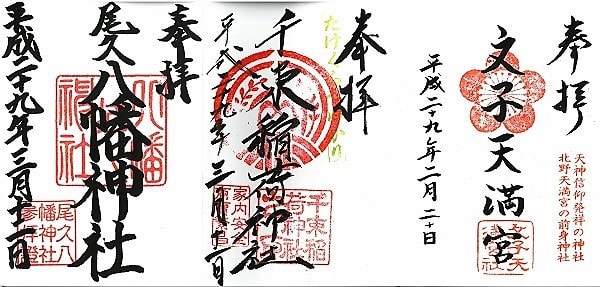 奉拝
文子天満宮
天神信仰発祥の神社
北野天満宮の前身神社
平成二十九年二月二十日
奉拝
千束稲荷神社
平成二十九年三月十二日
千束稲荷神社
家内安全
奉拝
尾久八幡神社
八幡神社
平成二十九年三月十二日
尾久八幡神社参拝証